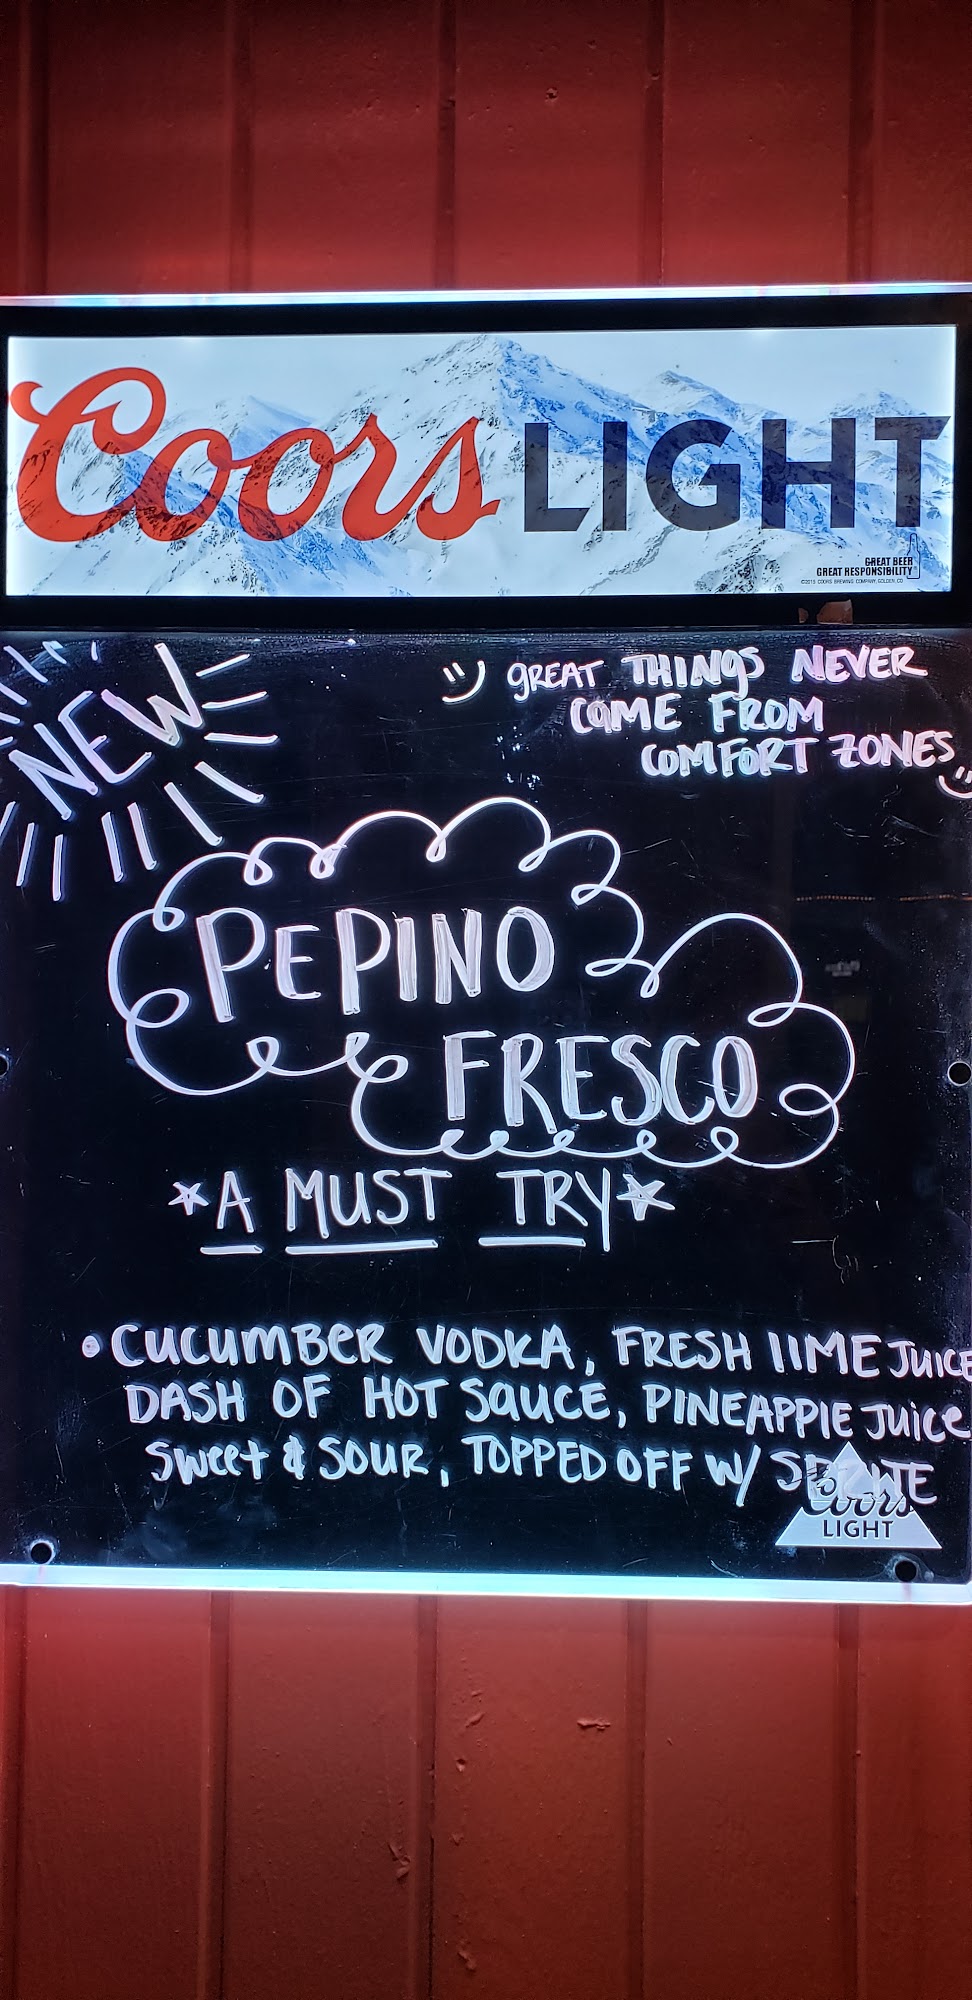 Coors LIGHT
GREAT BEER
GREAT RESPONSIBILITY
©2019 COORS BREWING COMPANY, GOLDEN, CO
NEW
GREAT THINGS NEVER
COME FROM
COMFORT ZONES
PEPINO
FRESCO
*A MUST TRY*
• CUCUMBER VODKA, FRESH LIME JUICE
DASH OF HOT SAUCE, PINEAPPLE JUICE
SWEET & SOUR, TOPPED OFF W/ SPRITE
Coors
LIGHT